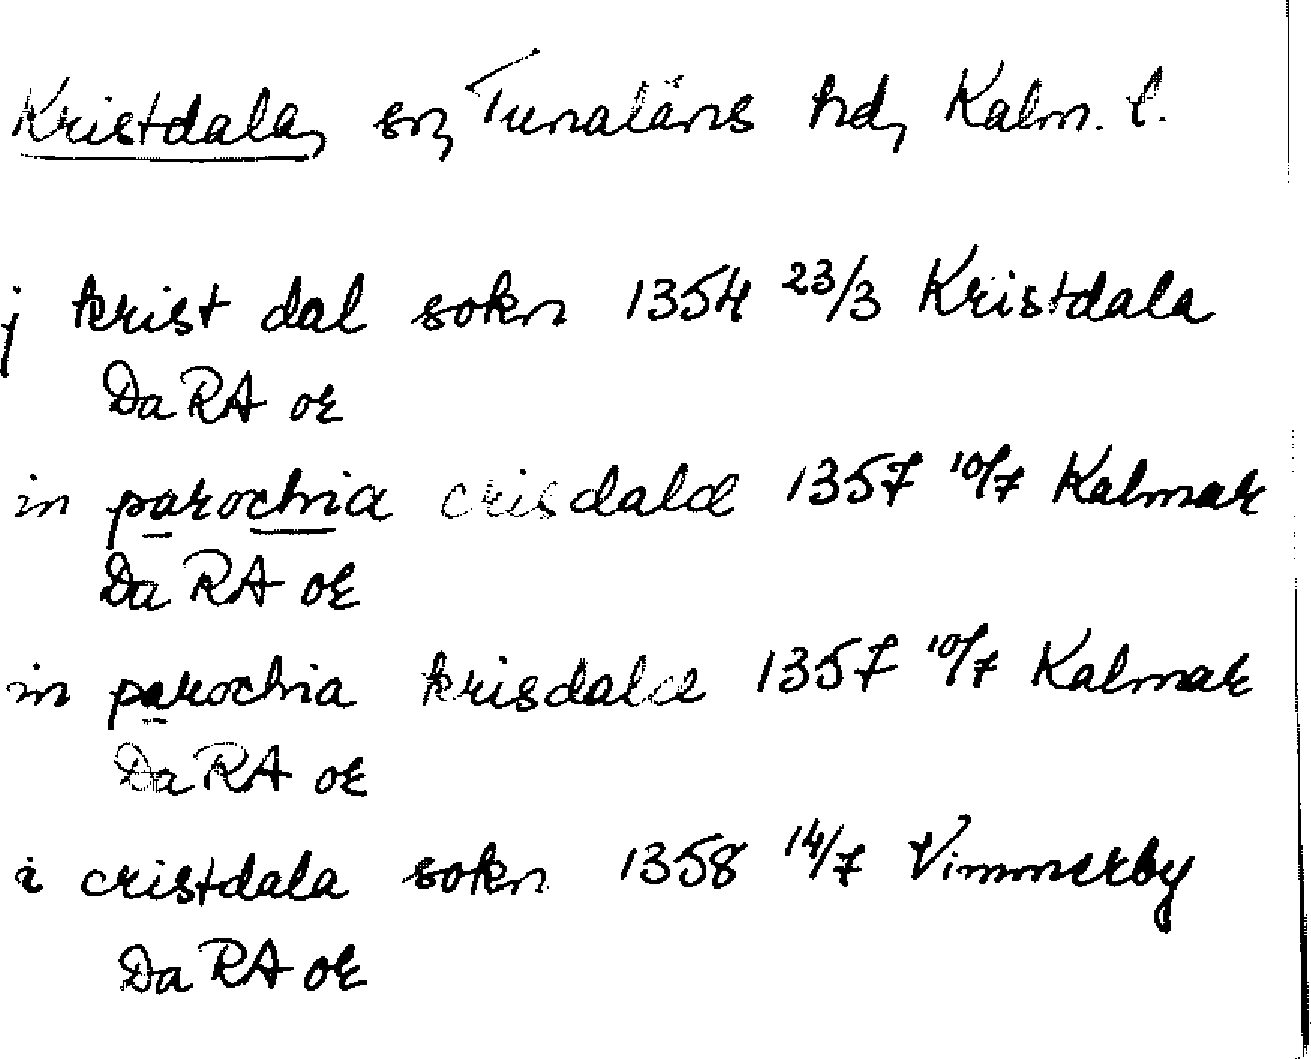 Kristdala, sn, Tunaläns hd, Kalm. l.
j krist dal sokn 1354 23/3 Kristdala
Da RA or
in parochia crisdalæ 1357 10/7 Kalmar
Da RA or
in parochia krisdalæ 1357 10/7 Kalmar
Da RA or
i cristdala sokn 1358 14/7 Vimmerby
Da RA or